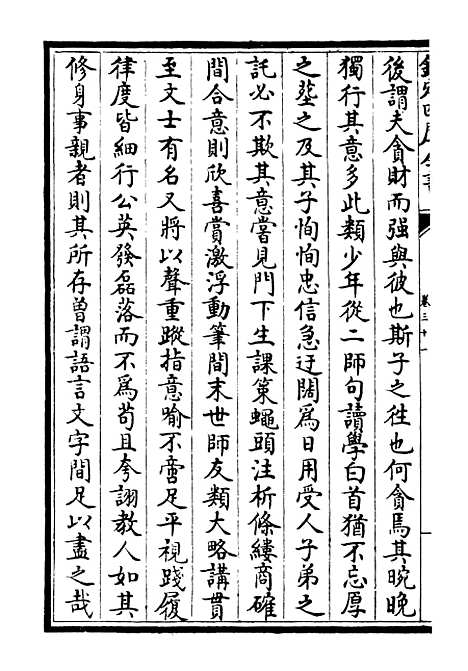 欽定四庫全書
卷三十一
後謂夫貪財而强與彼也斯子之徃也何貪焉其晩晚
獨行其意多此類少年從二師句讀學白首猶不忘厚
之塟之及其子恂恂忠信急迂闊為日用受人子弟之
託必不欺其意嘗見門下生課策蠅頭注析條縷商確
間合意則欣喜賞激浮動筆間末世師友類大略講貫
至文士有名又將以聲重蹤指意喻不啻足平視踐履
律度皆細行公英發磊落而不為苟且夸詡教人如其
修身事親者則其所存曽謂語言文字間足以盡之哉